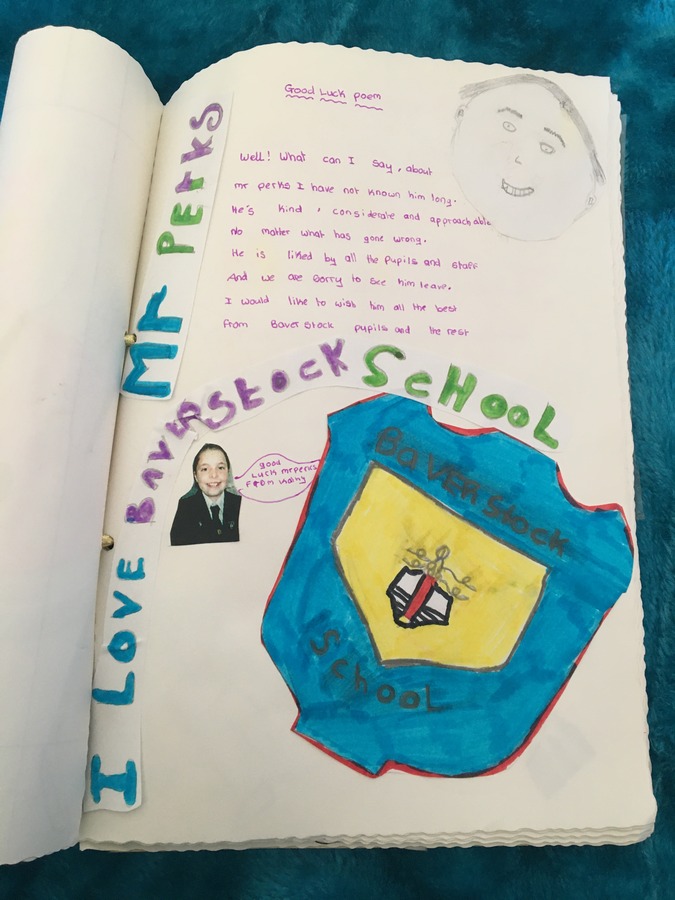 Good Luck poem
Well! What can I say, about
mr perks I have not known him long.
He's kind, considerate and approachable
No matter what has gone wrong.
He is liked by all the pupils and staff
And we are sorry to see him leave.
I would like to wish him all the best
from Baverstock pupils and the rest
I LOVE Mr PerKS
BaVERStocK SCHOOL
good
Luck mrperks
FROM
BaVERStock
School